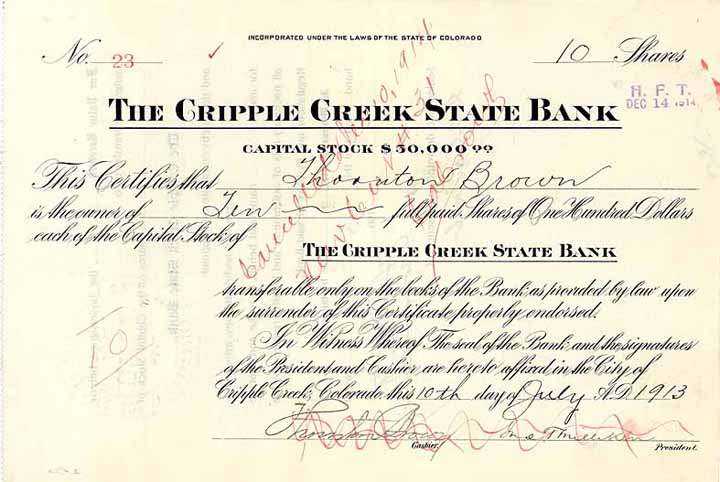 INCORPORATED UNDER THE LAWS OF THE STATE OF COLORADO
No. 23
10 Shares
H. F. T.
DEC 14 1914
THE CRIPPLE CREEK STATE BANK
CAPITAL STOCK $50,000 00
This Certifies that Thornton Brown
is the owner of Ten full paid Shares of One Hundred Dollars
each of the Capital Stock of
THE CRIPPLE CREEK STATE BANK
transferable only on the books of the Bank as provided by law upon
the surrender of this Certificate properly endorsed.
In Witness Whereof The seal of the Bank and the signatures
of the President and Cashier are hereto affixed in the City of
Cripple Creek, Colorado this 10th day of July A.D. 1913
Cashier.
President.
Cancelled 10, 1914
10